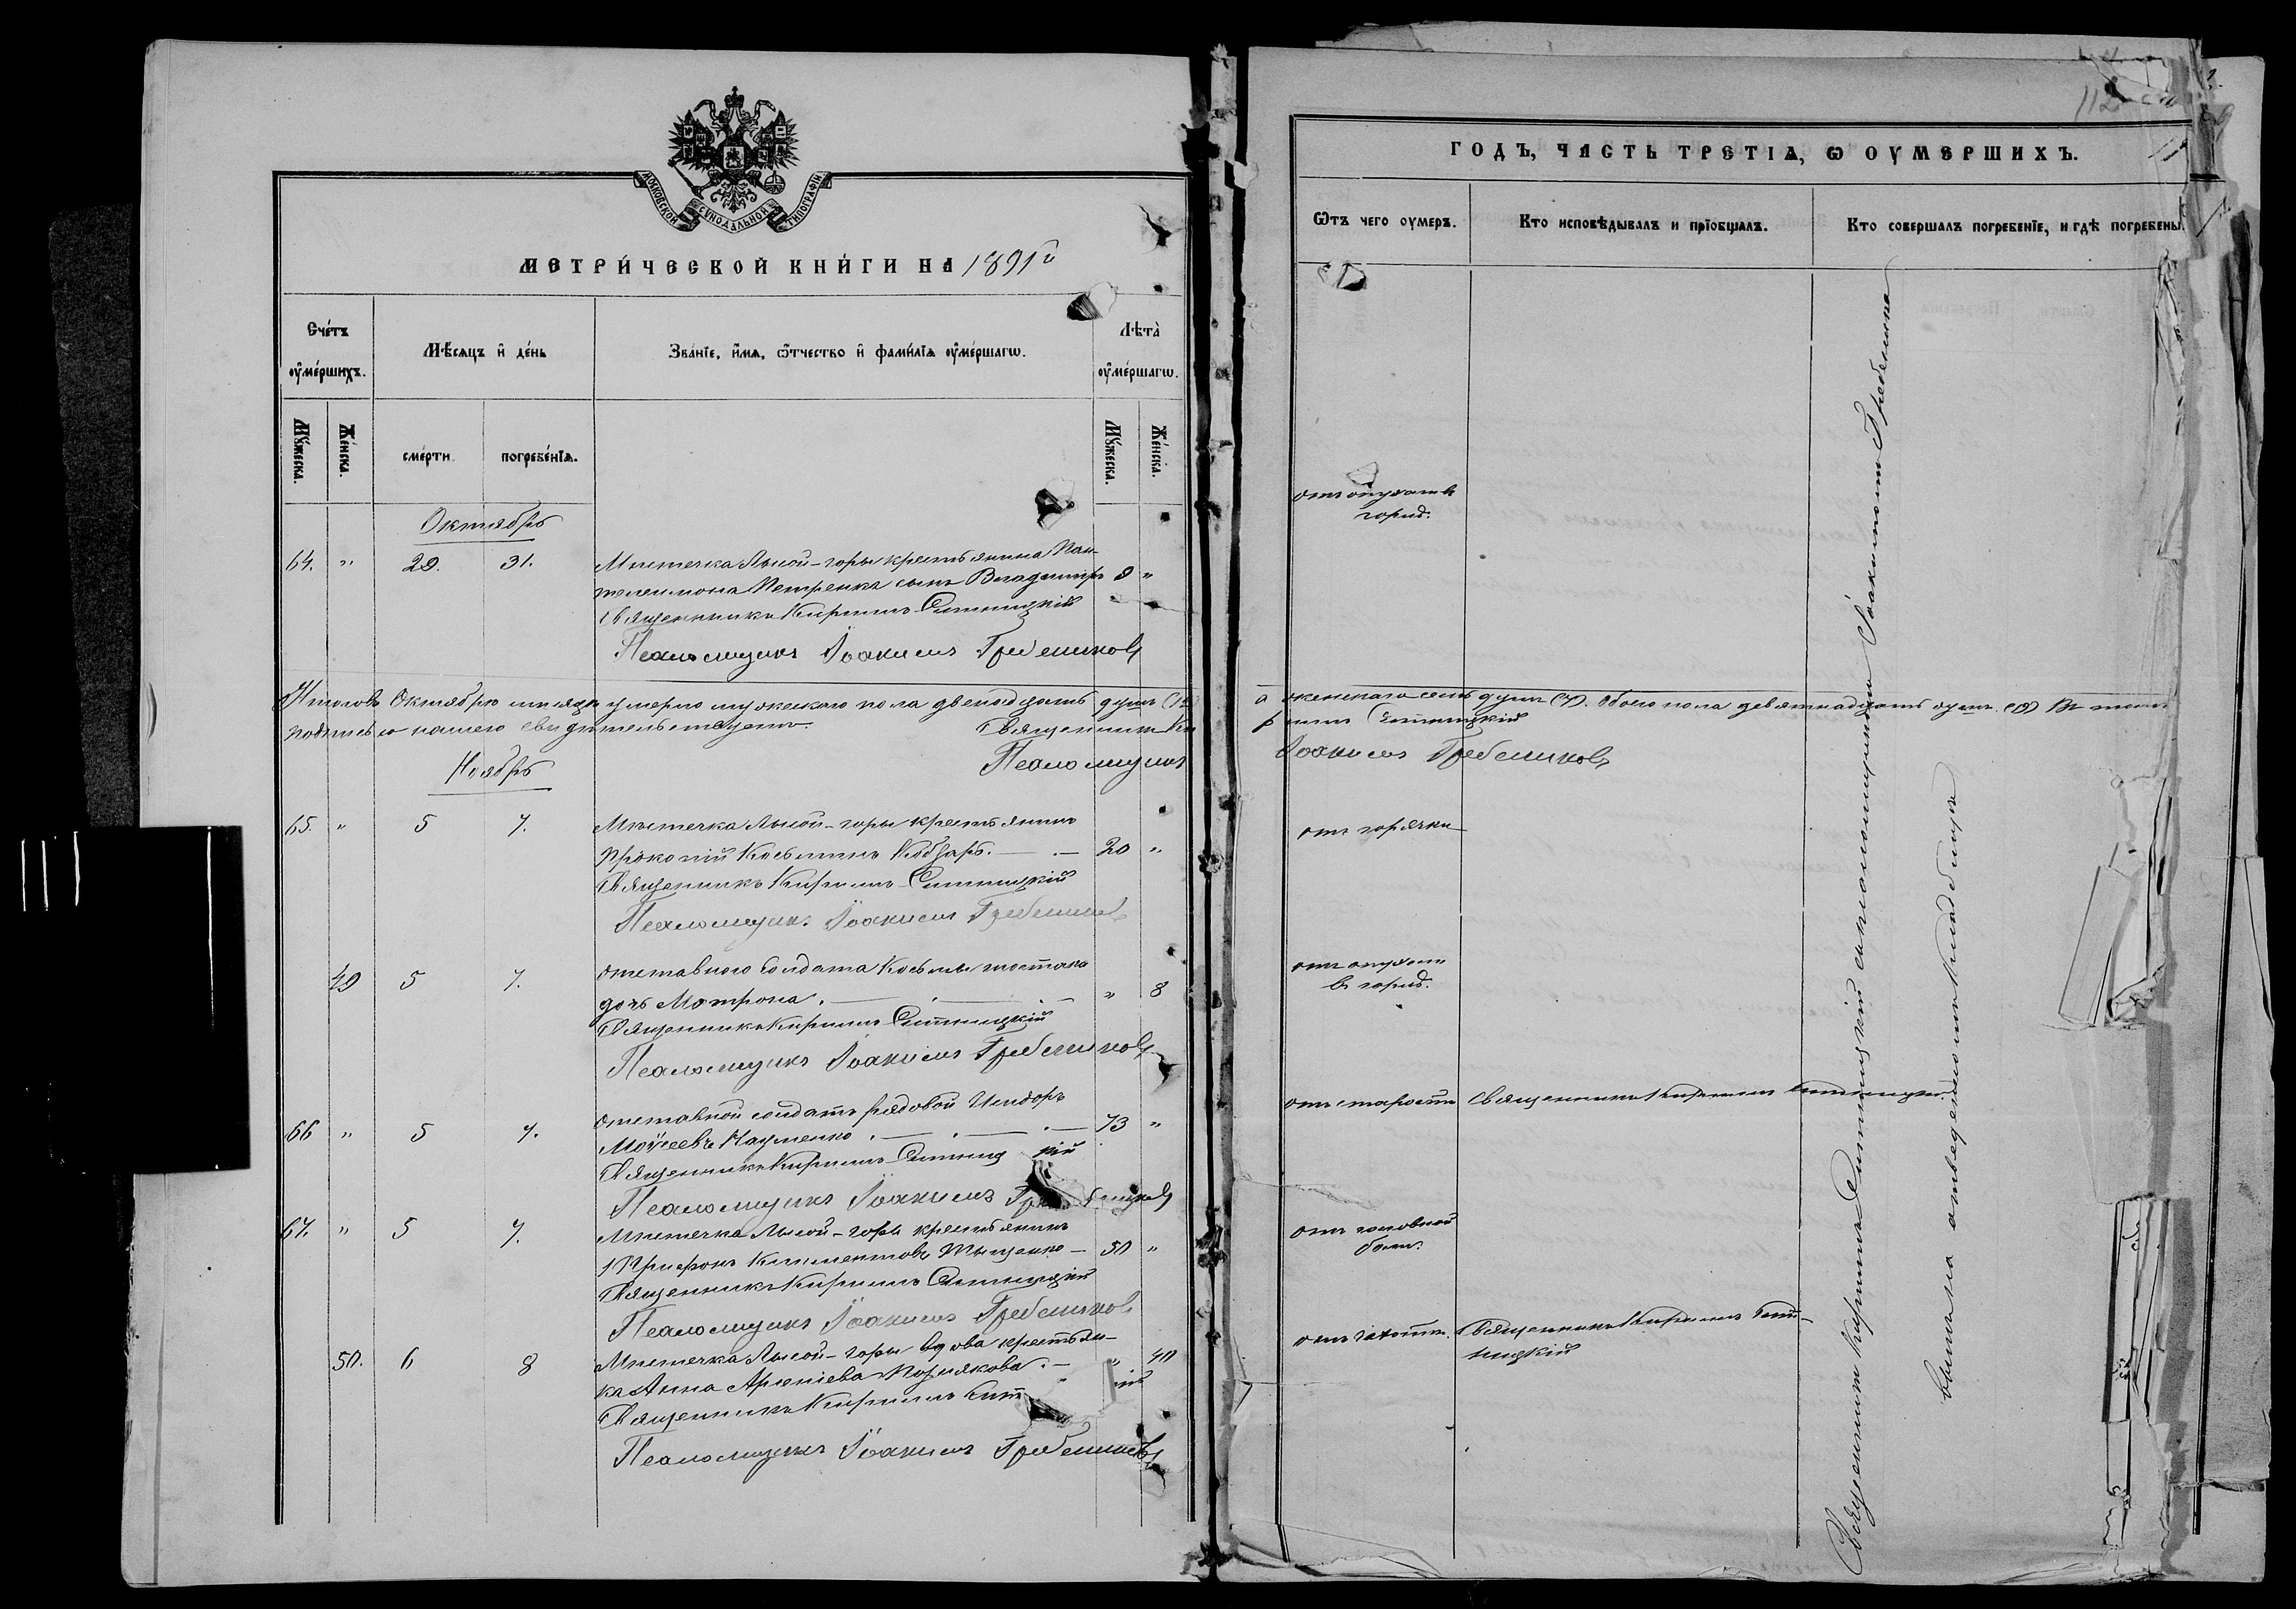 МОСКОВСКОЙ СУНОДАЛЬНОЙ ТИПОГРАФІИ
МЕТРИ́ЧЕСКОЙ КНИ́ГИ НА 1891й
Счéтъ ᲂу҆мéршихъ.
Мѣ́сяцъ и҆ дéнь
Звáнїе, и҆́мѧ, ѻ҆́тчество и҆ фамѝлїѧ ᲂу҆мéршагѡ.
Лѣтà ᲂу҆мéршагѡ.
Мýжеска.
Жéнска.
смéрти
погребéнїѧ.
Мýжеска.
Жéнска.
Октябрь
64. " 29. 31. Мѣстечка Лысой-горы крестьянина Пан-
телеимона Петренка сынъ Владимиръ 9 "
Священникъ Кириллъ Ситницкій
Псаломщикъ Іоакимъ Гребенников
Итого въ Октябрѣ мѣсяцѣ умерло мужескаго пола двенадцать душъ (12
подписью нашею свидѣтельствуемъ. Священникъ Ки
Псаломщикъ
Ноябрь
65. " 5 7. Мѣстечка Лысой-горы крестьянинъ
Прокопій Косьминъ Кобзарь. 20 "
Священникъ Кириллъ Ситницкій
Псаломщикъ Іоакимъ Гребенников
49 5 7. отставного солдата Косьмы
дочь Матрона. " 8
Священникъ Кириллъ Ситницкій
Псаломщикъ Іоакимъ Гребенников
66 " 5 7. отставной солдатъ рядовой Исидоръ
Моѵсеевъ Науменко. 73 "
Священникъ Кириллъ Ситниц кій
Псаломщикъ Іоакимъ Гребенников
67. " 5 7. Мѣстечка Лысой-горы крестьянинъ
Трифонъ Климентовъ Тыщенко 50 "
Священникъ Кириллъ Ситницкій
Псаломщикъ Іоакимъ Гребенников
50. 6 8 Мѣстечка Лысой-горы вдова крестьян-
ка Анна Арсеніева Познякова. " 40
Священникъ Кириллъ Сит ій
Псаломщикъ Іоакимъ Гребенников
112
ГОДЪ, ЧАСТЬ ТРЕТІѦ, Ѡ ОУМЕРШИХЪ.
Ѿтъ чего оумеръ.
Кто исповѣдывалъ и прїобщалъ.
Кто совершалъ погребенїе, и гдѣ погребены.
отъ опухоли въ
горлѣ.
а женскаго семь душъ (7). Обоего пола девятнадцать душъ. (19) Въ чемъ
риллъ Ситницкій
Іоакимъ Гребенников
отъ горячки
отъ опухоли
въ горлѣ.
отъ старости Священникъ Кириллъ Ситницкій.
отъ головной
боли.
отъ чахотки. Священникъ Кириллъ Сит-
ницкій
Священникъ Кириллъ Ситницкій съ псаломщикомъ Іоакимомъ Гребенника
на отведенномъ кладбищѣ